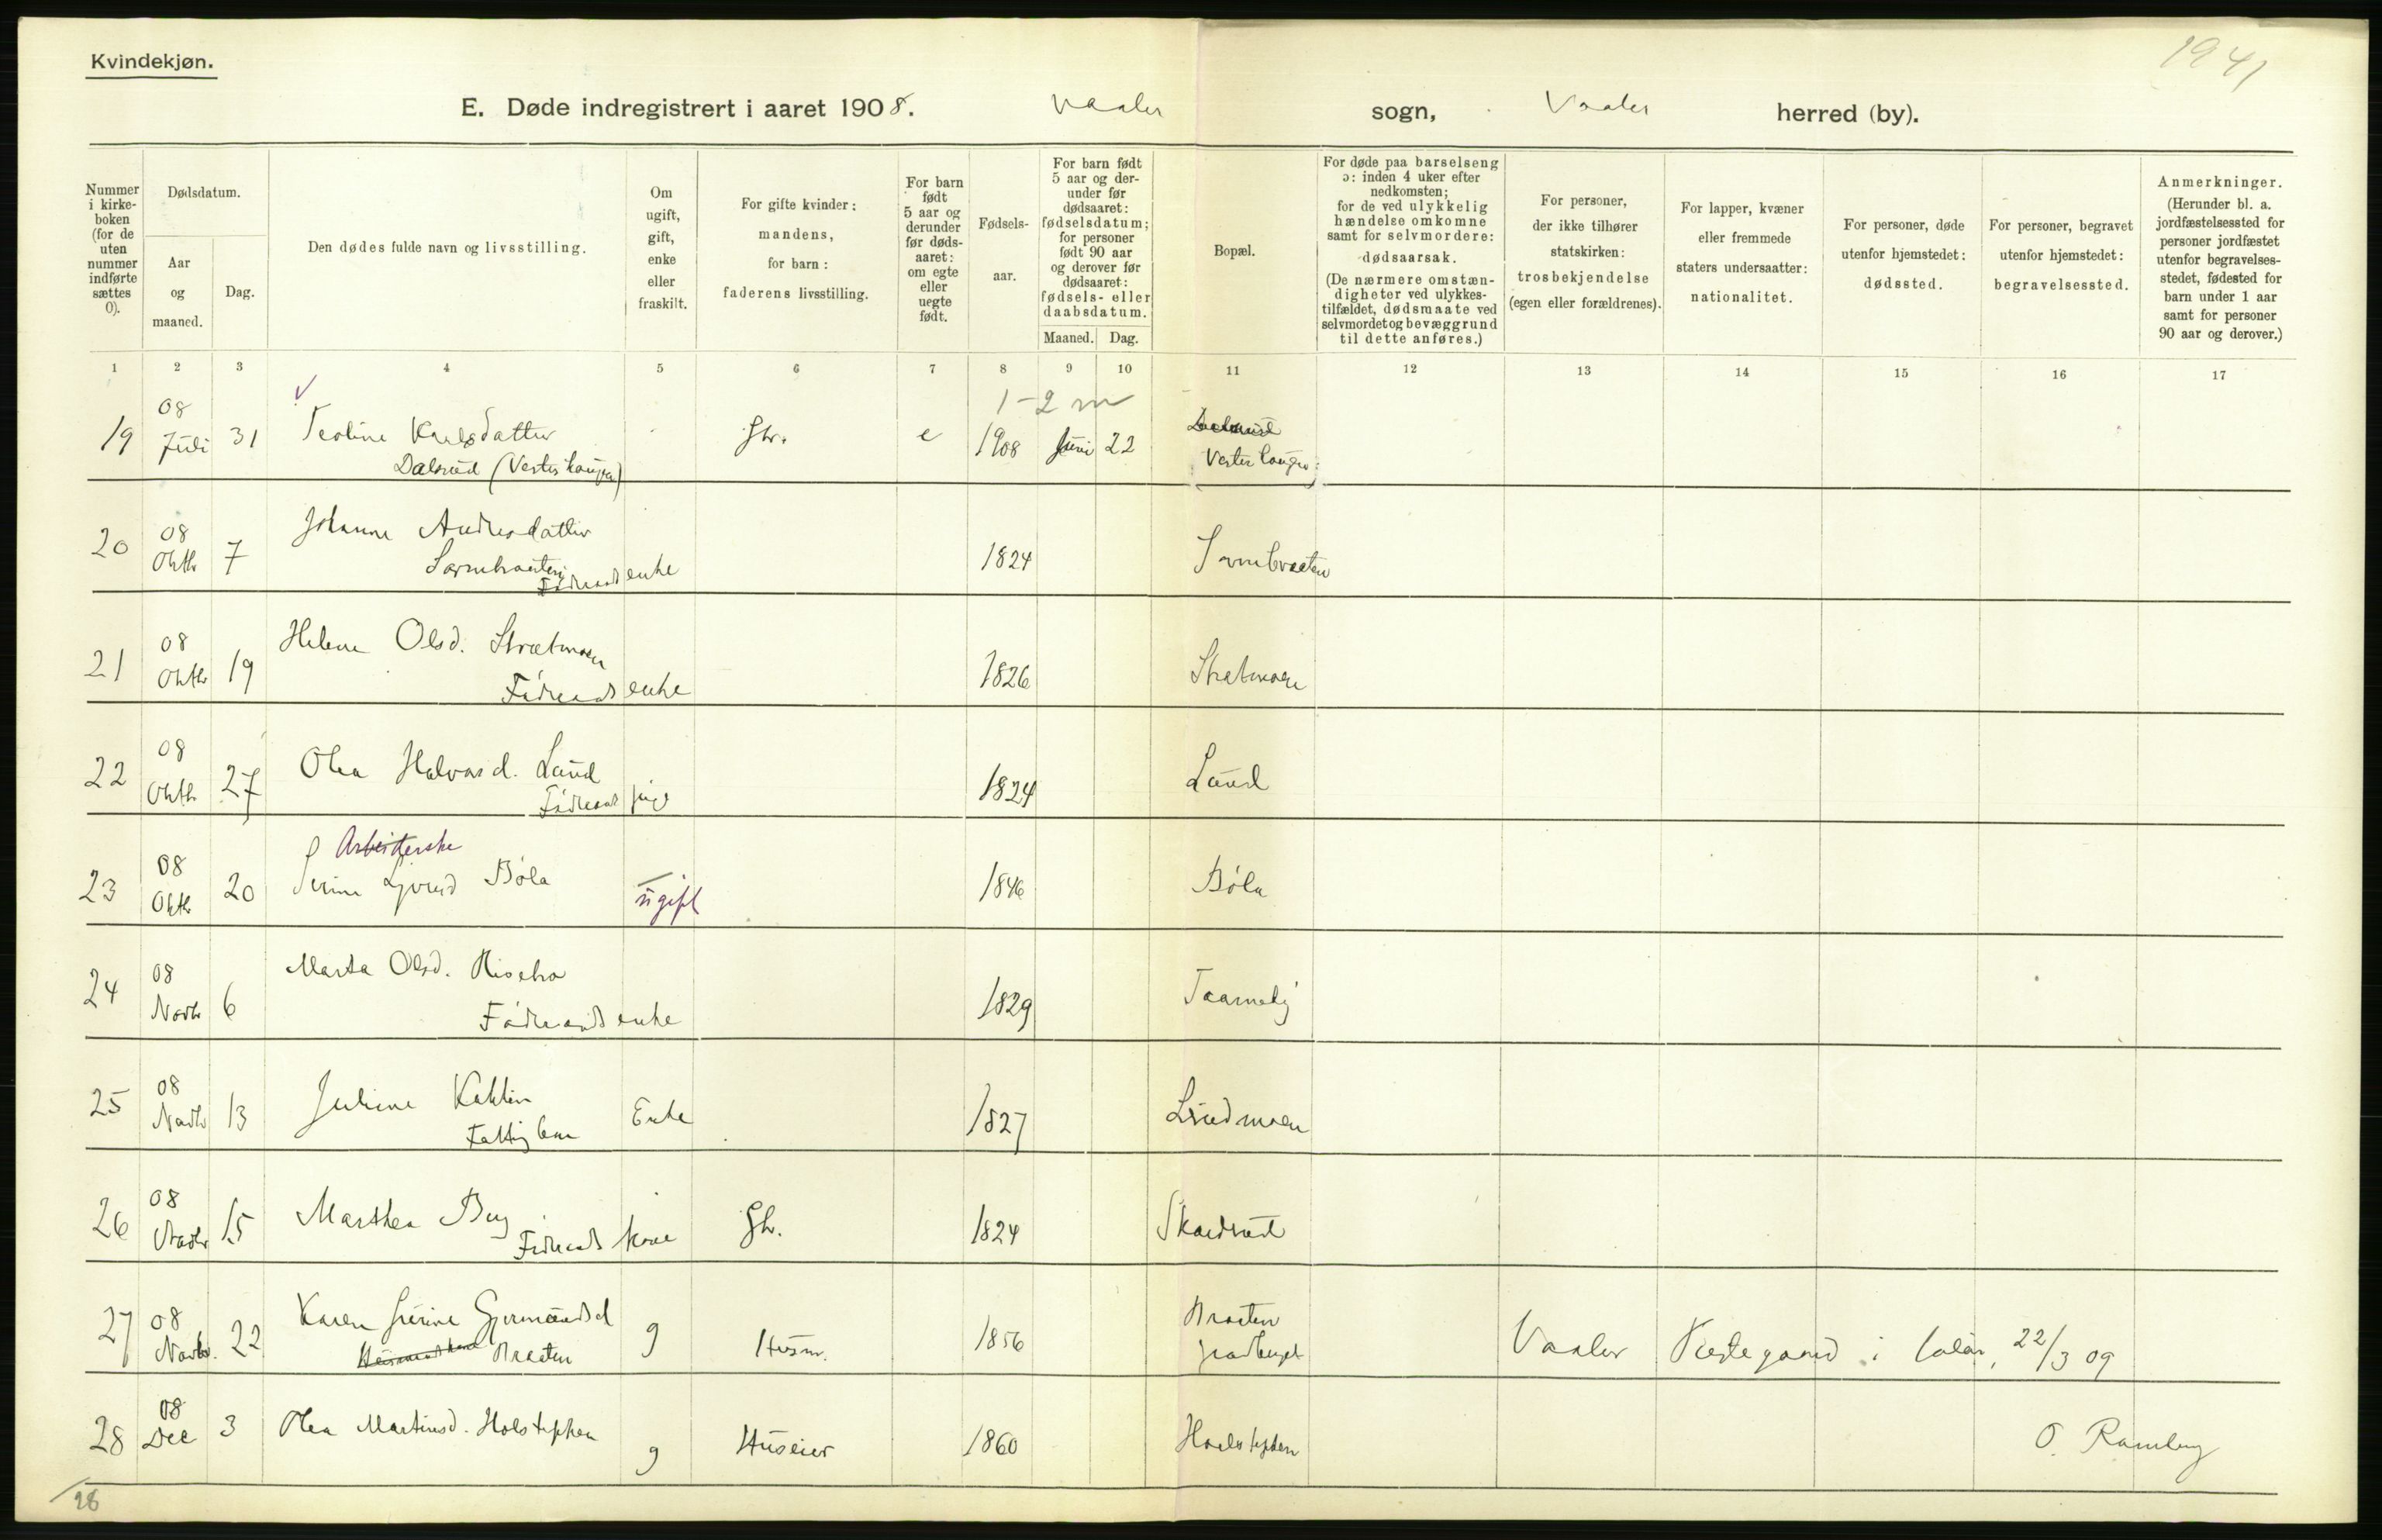 Kvindekjøn.
1941
E. Døde indregistrert i aaret 1908. Vaaler sogn, Vaaler herred (by).
Nummer i kirkeboken (for de uten nummer indførte sættes 0).
Dødsdatum.
Aar og maaned.
Dag.
Den dødes fulde navn og livsstilling.
Om ugift, gift, enke eller fraskilt.
For gifte kvinder: mandens, for barn: faderens livsstilling.
For barn født 5 aar og derunder før dødsaaret: om egte eller uegte født.
Fødselsaar.
For barn født 5 aar og derunder før dødsaaret: fødselsdatum; for personer født 90 aar og derover før dødsaaret: fødsels- eller daabsdatum.
Maaned. Dag.
Bopæl.
For døde paa barselseng ɔ: inden 4 uker efter nedkomsten; for de ved ulykkelig hændelse omkomne samt for selvmordere: dødsaarsak.
(De nærmere omstændigheter ved ulykkestilfældet, dødsmaate ved selvmordet og bevæggrund til dette anføres.)
For personer, der ikke tilhører statskirken: trosbekjendelse (egen eller forældrenes).
For lapper, kvæner eller fremmede staters undersaatter: nationalitet.
For personer, døde utenfor hjemstedet: dødssted.
For personer, begravet utenfor hjemstedet: begravelsessted.
Anmerkninger. (Herunder bl. a. jordfæstelsessted for personer jordfæstet utenfor begravelsesstedet, fødested for barn under 1 aar samt for personer 90 aar og derover.)
1 2 3 4 5 6 7 8 9 10 11 12 13 14 15 16 17
08 1-2 m
19 Juli 31 Karlsdatter e 1908 Juni 22
Dalsrud
20 08 Oktb 7 Johanne Andresdatter
enke 1824
21 08 Oktb 19 Helene Olsd. Strætmoen
Føderaads enke 1826 Strætmoen
22 08 Oktb 27 Olea Halvorsd. Lund
Føderaads pige 1824 Lund
Arbeiterske
23 08 Oktb 20 Bøla ugift 1846 Bøla
24 08 Novb 6 Marta Olsd.
Føderaads enke 1829
25 08 Novb 13 Juline
Fattiglem Enke 1827 Lindmoen
26 08 Novb 15 Marthea Berg
Føderaads kone 1824
27 08 Novb. 22 Karen
Braaten g Husm. 1856 Braaten
Vaaler i 22/3 09
28 08 Dec 3 Olea Martinsd. g Huseier 1860
O. Ramberg
28